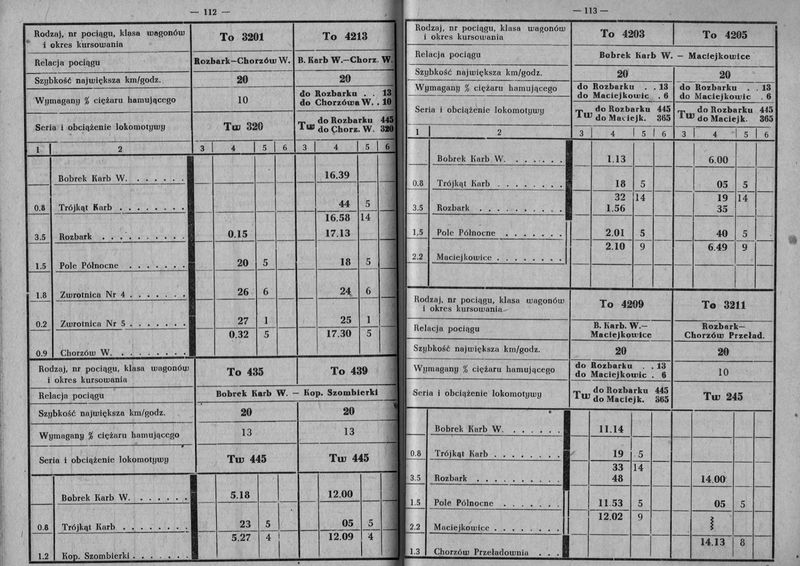 — 112 —
Rodzaj, nr pociągu, klasa wagonów i okres kursowania To 3201 To 4213
Relacja pociągu Rozbark—Chorzów W. B. Karb W.—Chorz. W.
Szybkość największa km/godz. 20 20
Wymagany % ciężaru hamującego 10 do Rozbarku . . 13
do Chorzówa W. . 10
Seria i obciążenie lokomotywy Tw 320 Tw do Rozbarku 445
do Chorz. W. 320
1 2 3 4 5 6 3 4 5 6
Bobrek Karb W. . . . . . . 16.39
0.8 Trójkąt Karb . . . . . . . . 44 5
16.58 14
3.5 Rozbark . . . . . . . . . . 0.15 17.13
1.5 Pole Północne . . . . . . . 20 5 18 5
1.8 Zwrotnica Nr 4 . . . . . . . 26 6 24 6
0.2 Zwrotnica Nr 5 . . . . . . . 27 1 25 1
0.32 5 17.30 5
0.9 Chorzów W. . . . . . . . .
Rodzaj, nr pociągu, klasa wagonów i okres kursowania To 435 To 439
Relacja pociągu Bobrek Karb W. — Kop. Szombierki
Szybkość największa km/godz. 20 20
Wymagany % ciężaru hamującego 13 13
Seria i obciążenie lokomotywy Tw 445 Tw 445
Bobrek Karb W. . . . . . . 5.18 12.00
0.8 Trójkąt Karb . . . . . . . . 23 5 05 5
5.27 4 12.09 4
1.2 Kop. Szombierki . . . . . .
— 113 —
Rodzaj, nr pociągu, klasa wagonów i okres kursowania To 4203 To 4205
Relacja pociągu Bobrek Karb W. — Maciejkowice
Szybkość największa km/godz. 20 20
Wymagany % ciężaru hamującego do Rozbarku . . 13 do Rozbarku . . 13
do Maciejkowic . 6 do Maciejkowic . 6
Seria i obciążenie lokomotywy Tw do Rozbarku 445 Tw do Rozbarku 445
do Maciejk. 365 do Maciejk. 365
1 2 3 4 5 6 3 4 5 6
Bobrek Karb W. . . . . . . 1.13 6.00
0.8 Trójkąt Karb . . . . . . . . 18 5 05 5
32 14 19 14
3.5 Rozbark . . . . . . . . . . 1.56 35
1.5 Pole Północne . . . . . . . 2.01 5 40 5
2.10 9 6.49 9
2.2 Maciejkowice . . . . . . . .
Rodzaj, nr pociągu, klasa wagonów i okres kursowania To 4209 To 3211
Relacja pociągu B. Karb. W.—
Maciejkowice Rozbark—
Chorzów Przeład.
Szybkość największa km/godz. 20 20
Wymagany % ciężaru hamującego do Rozbarku . . 13
do Maciejkowic . 6 10
Seria i obciążenie lokomotywy Tw do Rozbarku 445
do Maciejk. 365 Tw 245
Bobrek Karb W. . . . . . . 11.14
0.8 Trójkąt Karb . . . . . . . . 19 5
33 14
3.5 Rozbark . . . . . . . . . . 48 14.00
1.5 Pole Północne . . . . . . . 11.53 5 05 5
12.02 9
2.2 Maciejkowice . . . . . . . .
14.13 8
1.3 Chorzów Przeładownia . . .